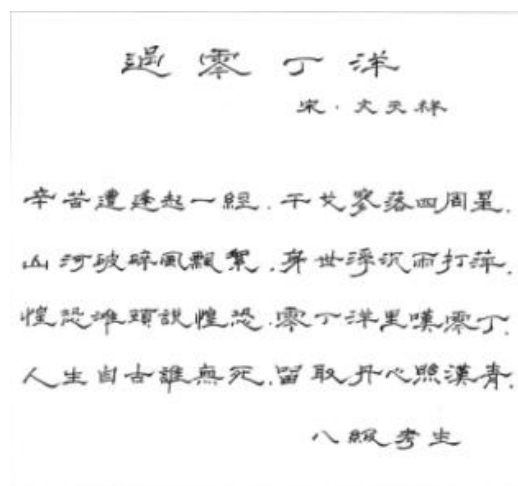 過零丁洋
宋·文天祥
辛苦遭逢起一經.干戈寥落四周星.
山河破碎風飄絮.身世浮沉雨打萍.
惶恐灘頭說惶恐.零丁洋里嘆零丁.
人生自古誰無死.留取丹心照漢青.
八級考生